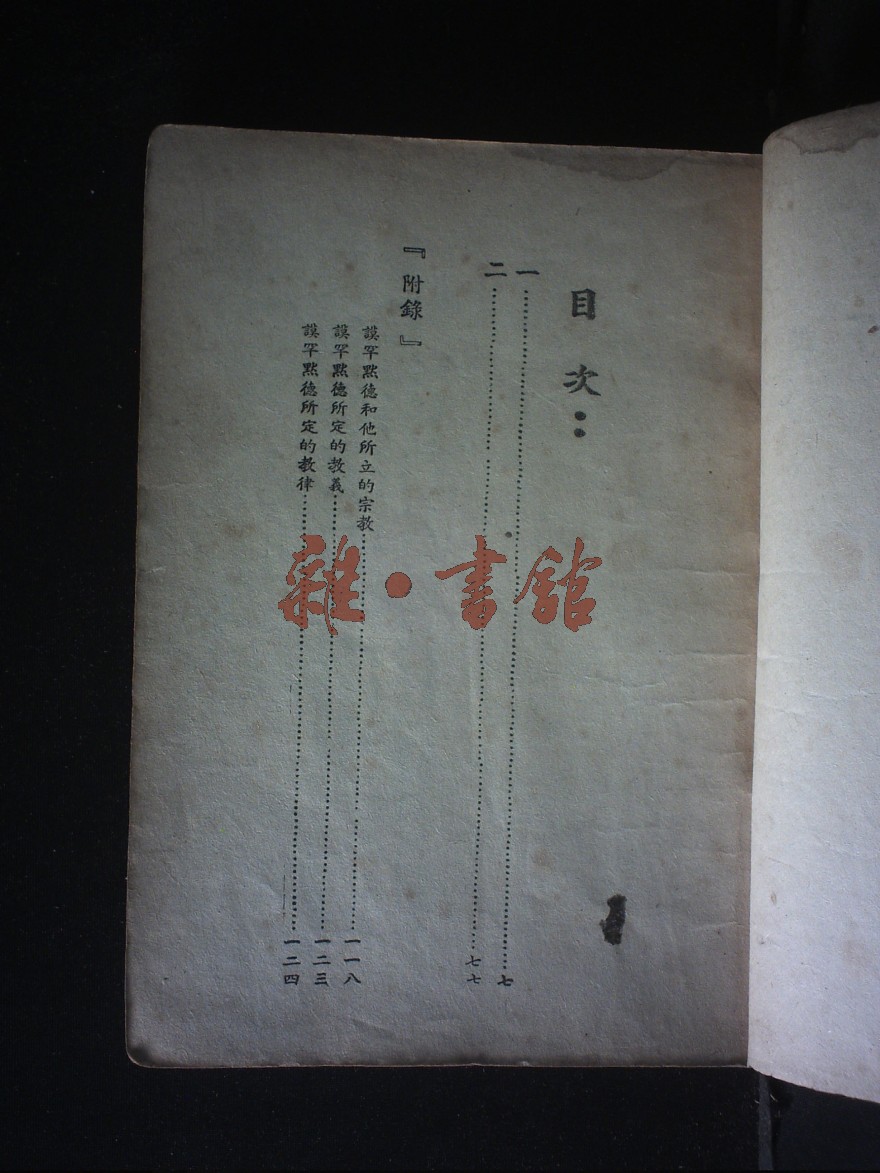 目次：
一……七
二……七七
『附錄』
謨罕默德和他所立的宗教……一一八
謨罕默德所定的教義……一二三
謨罕默德所定的教律……一二四
雜·書館